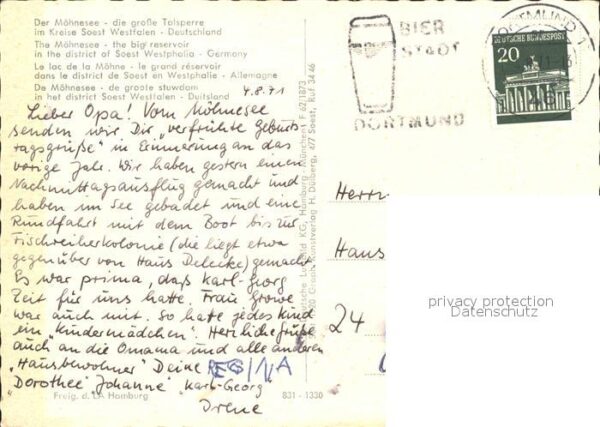 Der Möhnesee - die große Talsperre
im Kreise Soest Westfalen - Deutschland
The Möhnesee - the big reservoir
in the district of Soest Westphalia - Germany
Le lac de la Möhne - le grand réservoir
dans le district de Soest en Westphalie - Allemagne
De Möhnesee - de groote stuwdam
in het district Soest Westfalen - Duitsland
4.8.71
Lieber Opa! Vom Möhnesee
senden wir Dir „verfrühte Geburts-
tagsgrüße" in Erinnerung an das
vorige Jahr. Wir haben gestern einen
Nachmittagsausflug gemacht und
haben im See gebadet und eine
Rundfahrt mit dem Boot bis zur
Fischreiherkolonie (die liegt etwa
gegenüber von Haus Delecke) gemacht
Es war prima, daß Karl-Georg
Zeit für uns hatte. Frau Growe
war auch mit. So hatte jedes Kind
ein „Kindermädchen". Herzliche Grüße
auch an die Omama und alle anderen
„Hausbewohner" Deine REGINA
„Dorothee" „Johanne" Karl-Georg
Irene
Freig. d. LA Hamburg
831 - 1330
Deutsche Luftbild KG, Hamburg
München F 62/1873
H. Dülberg, 477 Soest, Ruf 3446
BIER
STADT
DORTMUND
DORTMUND 1
DEUTSCHE BUNDESPOST
20
46
Herrn
Hans
24
privacy protection
Datenschutz